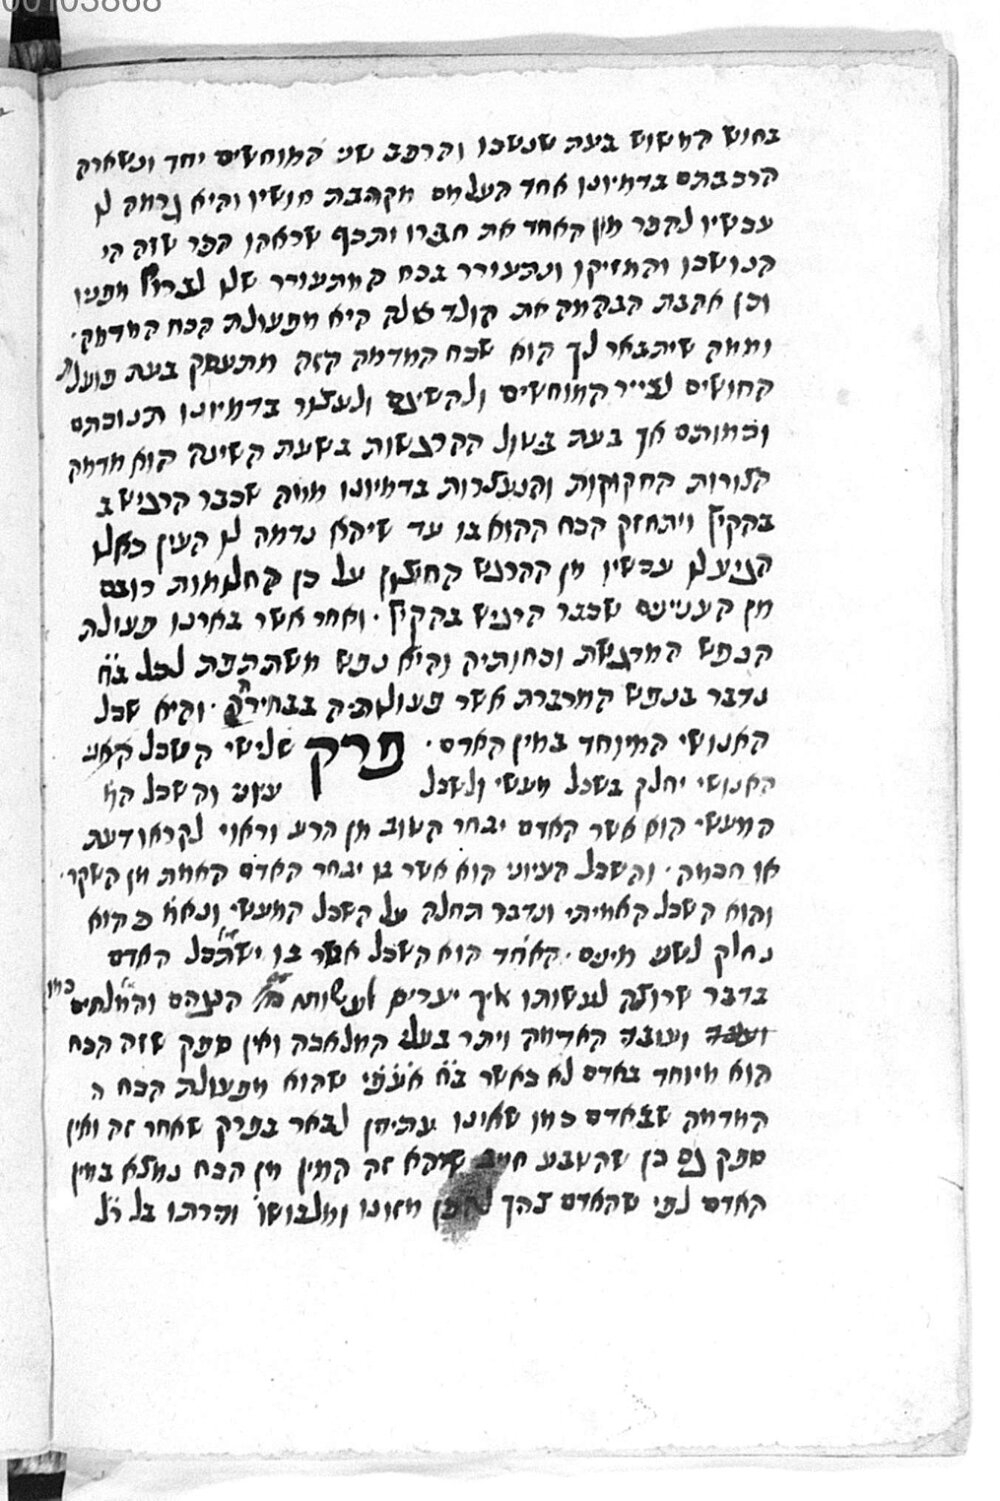 00103868
בחוש המשוש בעת שנשכו והרכב שני המוחשים יחד ונשארה
הרכבתם בדמיונו אחד העלמם מקרבת חושיו והיא גרמה לו
עכשיו להכר מין האחד את חברו ותכף שראהו הכר שזה הי
הנושכו והמזיקו ונתעורר בכח המתעורר שלו לברוח מפניו
וכן אהבת הבהמה את הולד שלה היא מפעולת הכח המדמה
וממה שיתבאר לך הוא שכח המדמה הזה מתעסק בעת פועלת
החושים לצייר המוחשים ולהשיגם ולעצור בדמיונו תכונתם
וכמותם אך בעת בטול ההרגשות בשעת השינה הוא מדמה
הצורות החקוקות והנעצרות בדמיונו ממה שכבר הרגיש ב
בהקיץ ויתחזק הכח ההוא בו עד שיהא נדמה לו העין כאלו
הגיע לו עכשיו מן ההרגש החיצון על כן החלומות רובם
מן הענינים שכבר הרגיש בהקיץ ׃ ואחר אשר בארנו פעולת
הנפש המרגשת וכחותיה והיא נפש משתתפת לכל ב״ח
נדבר בנפש המדברת אשר פעולתיה בבחירה ׃ והיא שכל
האנושי המיוחד במין האדם ׃ פרק שלישי השכל האנו
האנושי יחלק בשכל מעשי ולשכל עיוני והשכל המ
המעשי הוא אשר האדם יבחר הטוב מן הרע וראוי לקראו דעת
או חכמה ׃ והשכל העיוני הוא אשר בו יבחר האדם האמת מן השקר ׃
והוא השכל האמיתי ונדבר תחלה על השכל המעשי ונאמ׳ כי הוא
נחלק לשני מינים ׃ האחד הוא השכל אשר בו ישתכל האדם
בדבר שרוצה לעשותו איך יערים לעשותו כמו הנגרים והמלחים
ועובד האדמה ויתר בעלי המלאכה ואין ספק שזה הכח
הוא מיוחד באדם לא כאשר ב״ח שהוא מפעולת הכח ה
המדמה שבאדם כמו שאינו עתידין לבאר בפרק שאחר זה ואין
ספק גם כן שהטבע חייב שיהא זה המין מן הכח נמצא במין
האדם לפי שהאדם צריך מזונו ומלבושו ודירתו בל ר״ל